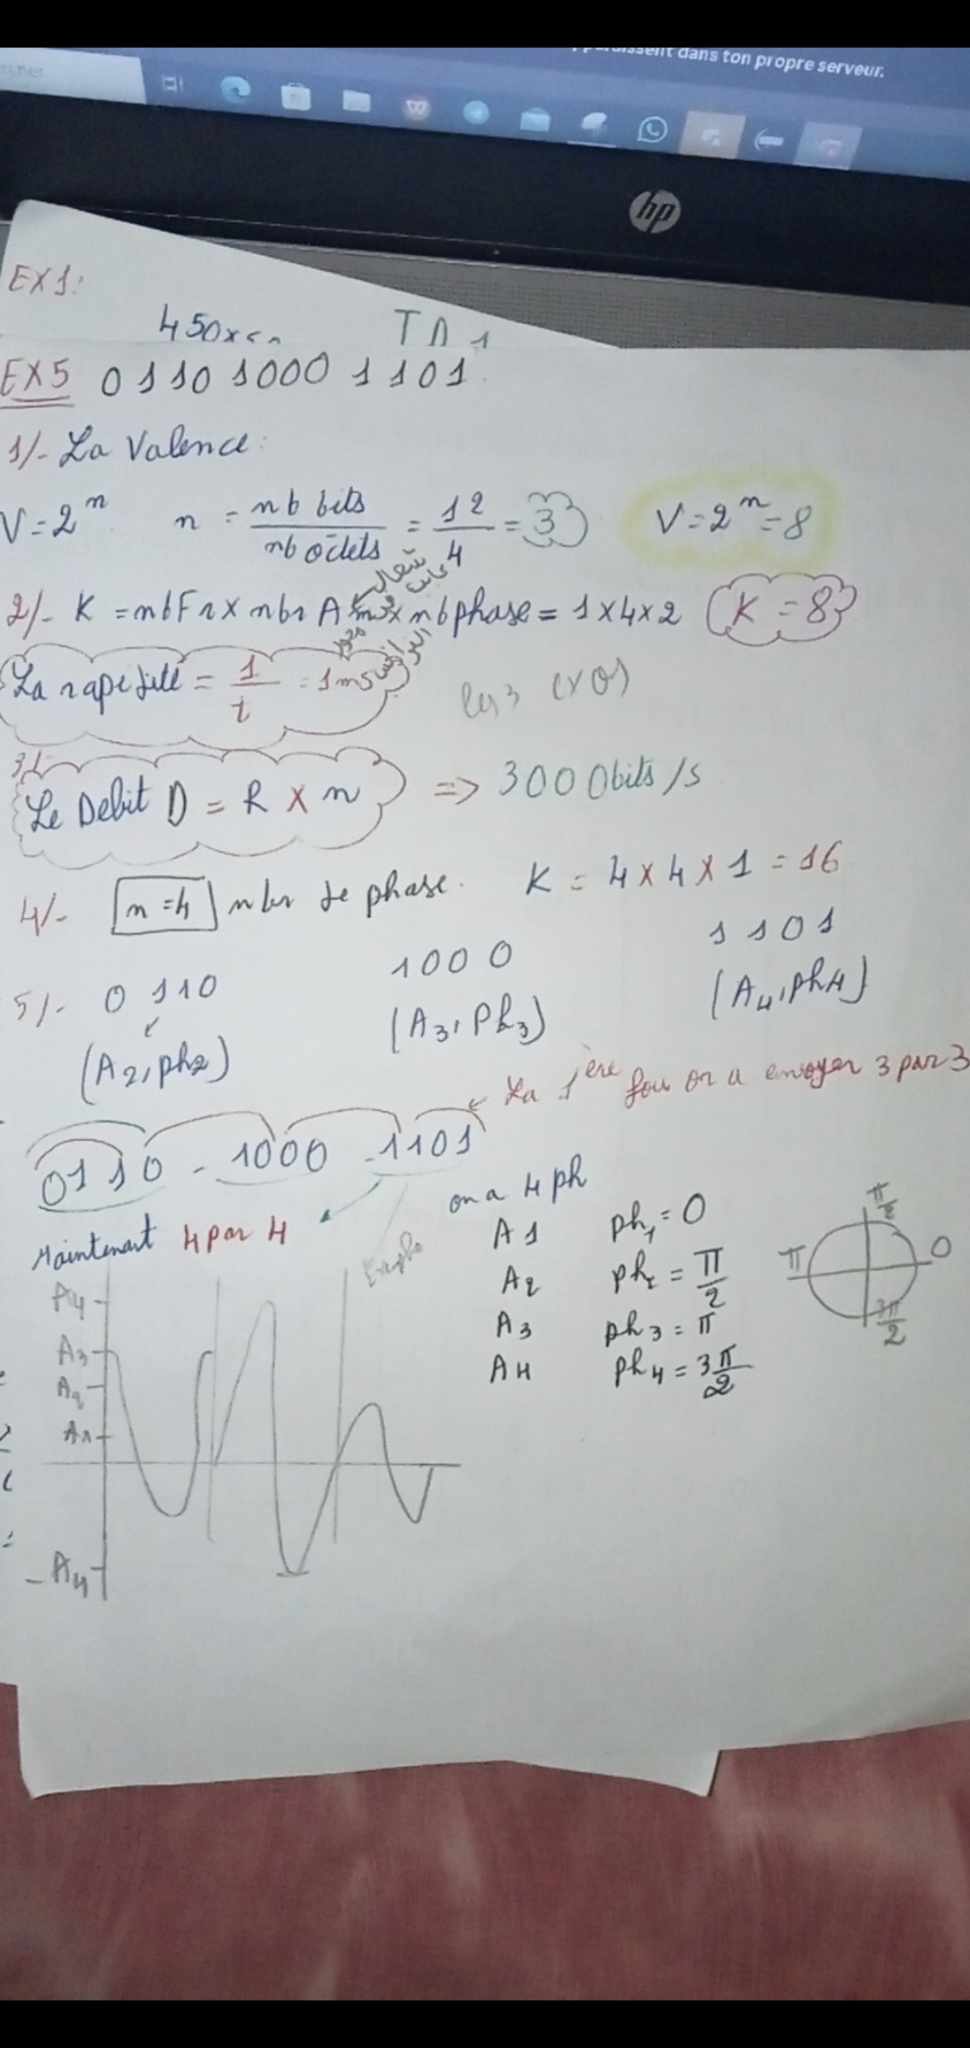 dans ton propre serveur.
hp
EX1:
450x
EX5 0110 1000 1101
1/- La Valence:
V = 2^n n = nb bits / nb octets = 12 / 4 = 3 V = 2^n = 8
2/- K = nbFr x nbr Am x nbphase = 1 x 4 x 2 K = 8
La rapidité = 1 / t = 1ms
les 3 exos
3/-
Le Debit D = R x n => 3000bits/s
4/- n = 4 nbr de phase. K = 4 x 4 x 1 = 16
5/- 0110 1000 1101
(A2, ph2) (A3, Ph3) (A4, ph4)
← La 1ère fou on a envoyer 3 par 3
0110 - 1000 - 1101
Maintenant 4 par 4
on a 4 ph
A1 ph1 = 0
A2 ph2 = π/2
A3 ph3 = π
A4 ph4 = 3π/2
π/2
π 0
3π/2
A4
A3
A2
A1
-A4